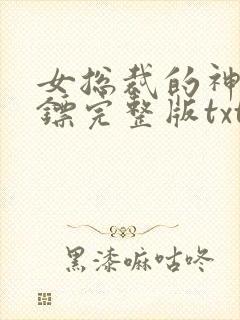 女总裁的神
镖完整版txt
黑漆嘛咕咚